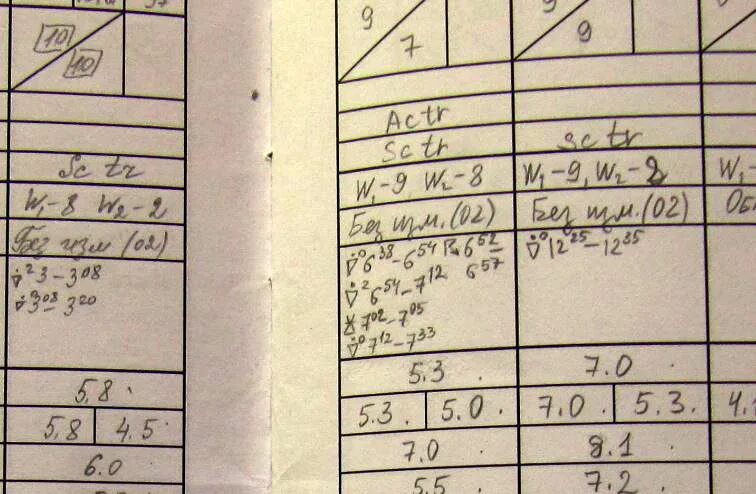 10
10
Sc tr
W₁-8 W₂-2
Без изм (02)
∇̇² 3 – 3⁰⁸
∇̇⁰ 3⁰⁸ – 3²⁰
5.8
5.8 4.5
6.0
9
7
Actr
Sc tr
W₁-9 W₂-8
Без изм. (02)
∇̇⁰ 6³⁸ – 6⁵⁴ 6⁵²
∇̇² 6⁵⁴ – 7¹² 6⁵⁷
7⁰² – 7⁰⁵
∇̇⁰ 7¹² – 7³³
5.3
5.3 5.0
7.0
5.5
9
9
Sc tr
W₁-9, W₂-8
Без изм. (02)
∇̇⁰ 12²⁵ – 12³⁵
7.0
7.0 5.3
8.1
7.2